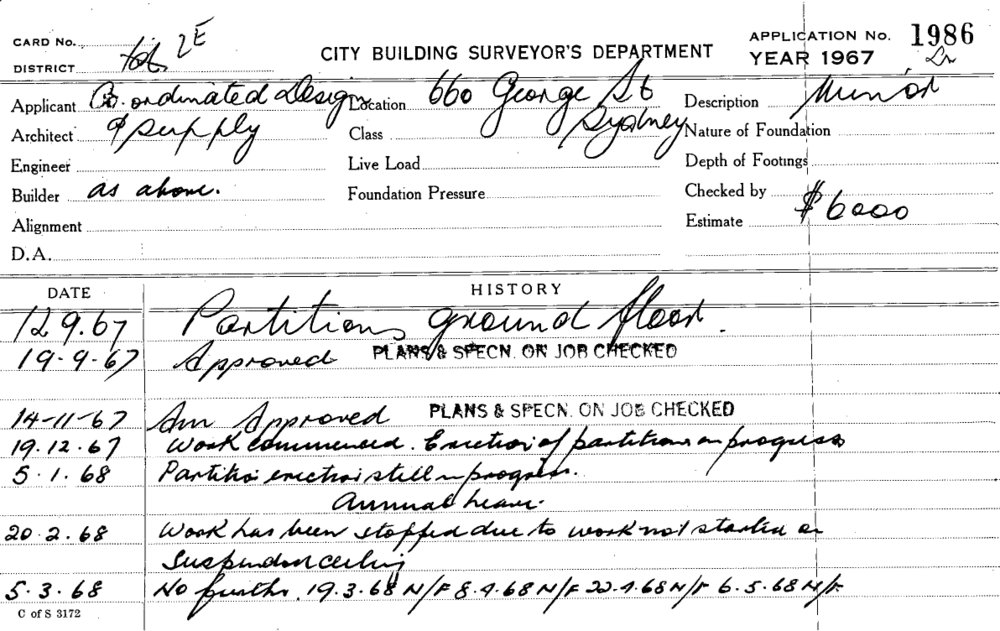 CARD No.
DISTRICT 2E
CITY BUILDING SURVEYOR'S DEPARTMENT
APPLICATION No. 1986
YEAR 1967
Applicant Co. ordinated Design Location 660 George St Description Minor
Architect & Supply Class Sydney Nature of Foundation
Engineer Live Load Depth of Footings
Builder as above. Foundation Pressure Checked by
Alignment Estimate $6000
D.A.
DATE HISTORY
12 9.67 Partitions ground floor.
19-9-67 Approved PLANS & SPECN. ON JOB CHECKED
14-11-67 Am Approved PLANS & SPECN. ON JOB CHECKED
19.12.67 Work commenced. Erection of partitions in progress
5.1.68 Partition erection still in progress.
Annual Leave.
20.2.68 Work has been stopped due to work not started on
Suspended ceiling
5.3.68 No further. 19.3.68 N/F 8.4.68 N/F 22.4.68 N/F 6.5.68 N/F.
C of S 3172